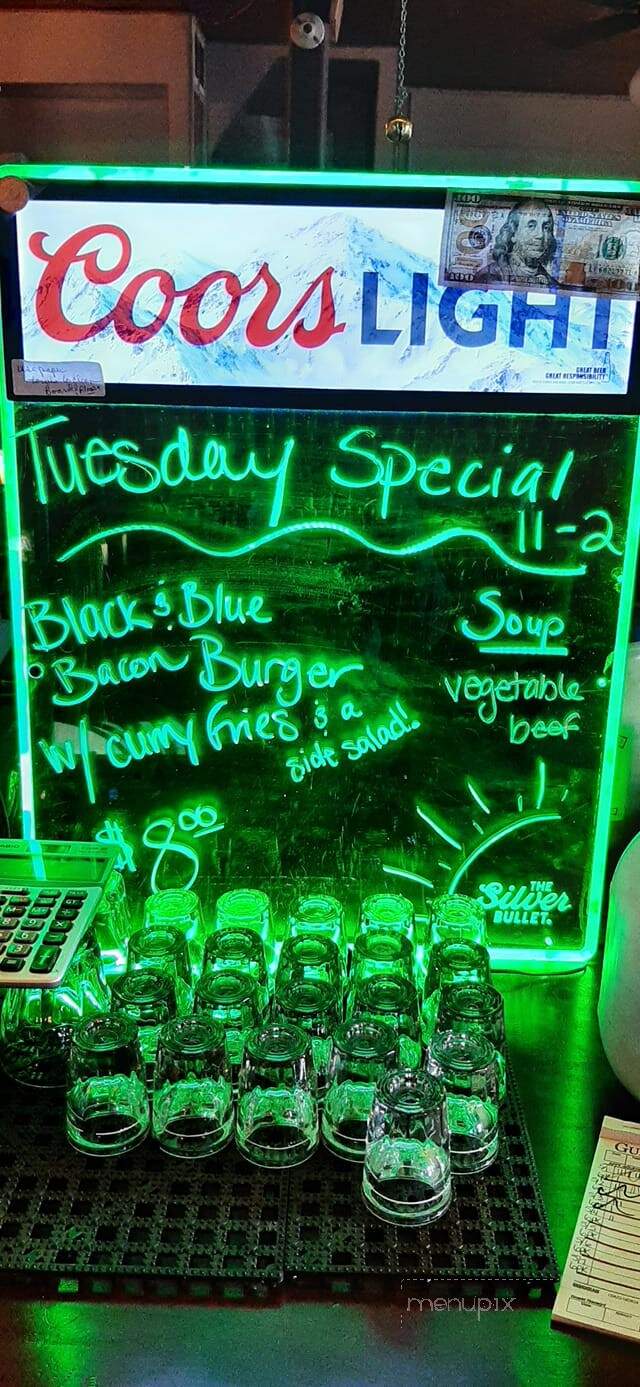 100
100
Coors LIGHT
GREAT BEER
GREAT RESPONSIBILITY
Tuesday Special
11-2
Black & Blue
Bacon Burger
w/ curry fries & a
side salad!!
$8.00
Soup
vegetable
beef
THE
Silver
BULLET.
CASIO
GU
menupix